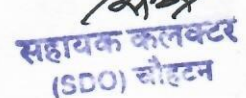 सहायक कलक्टर
(SDO) चौहटन